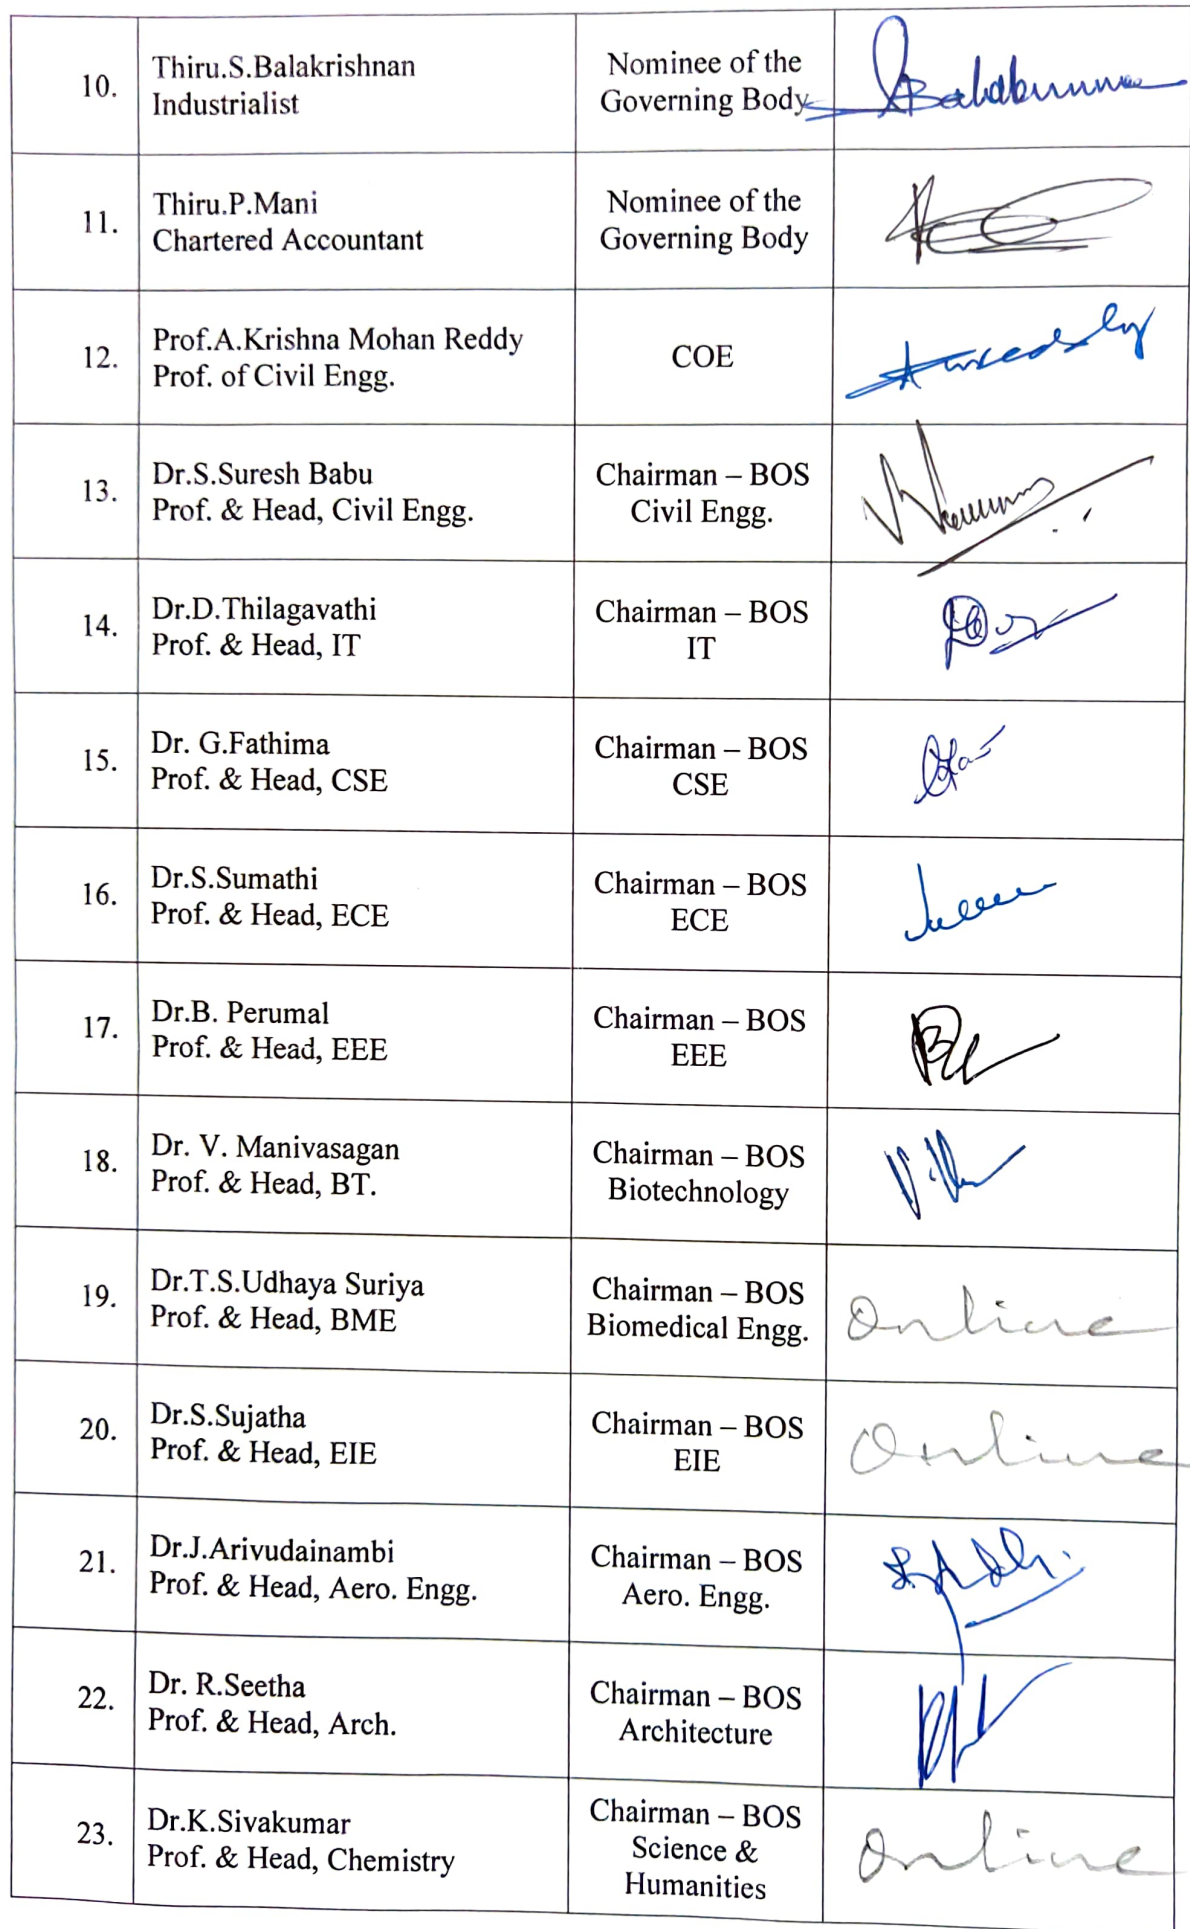 10.
Thiru.S.Balakrishnan
Industrialist
Nominee of the
Governing Body
11.
Thiru.P.Mani
Chartered Accountant
Nominee of the
Governing Body
12.
Prof.A.Krishna Mohan Reddy
Prof. of Civil Engg.
COE
13.
Dr.S.Suresh Babu
Prof. & Head, Civil Engg.
Chairman – BOS
Civil Engg.
14.
Dr.D.Thilagavathi
Prof. & Head, IT
Chairman – BOS
IT
15.
Dr. G.Fathima
Prof. & Head, CSE
Chairman – BOS
CSE
16.
Dr.S.Sumathi
Prof. & Head, ECE
Chairman – BOS
ECE
17.
Dr.B. Perumal
Prof. & Head, EEE
Chairman – BOS
EEE
18.
Dr. V. Manivasagan
Prof. & Head, BT.
Chairman – BOS
Biotechnology
19.
Dr.T.S.Udhaya Suriya
Prof. & Head, BME
Chairman – BOS
Biomedical Engg.
Online
20.
Dr.S.Sujatha
Prof. & Head, EIE
Chairman – BOS
EIE
Online
21.
Dr.J.Arivudainambi
Prof. & Head, Aero. Engg.
Chairman – BOS
Aero. Engg.
22.
Dr. R.Seetha
Prof. & Head, Arch.
Chairman – BOS
Architecture
23.
Dr.K.Sivakumar
Prof. & Head, Chemistry
Chairman – BOS
Science &
Humanities
Online